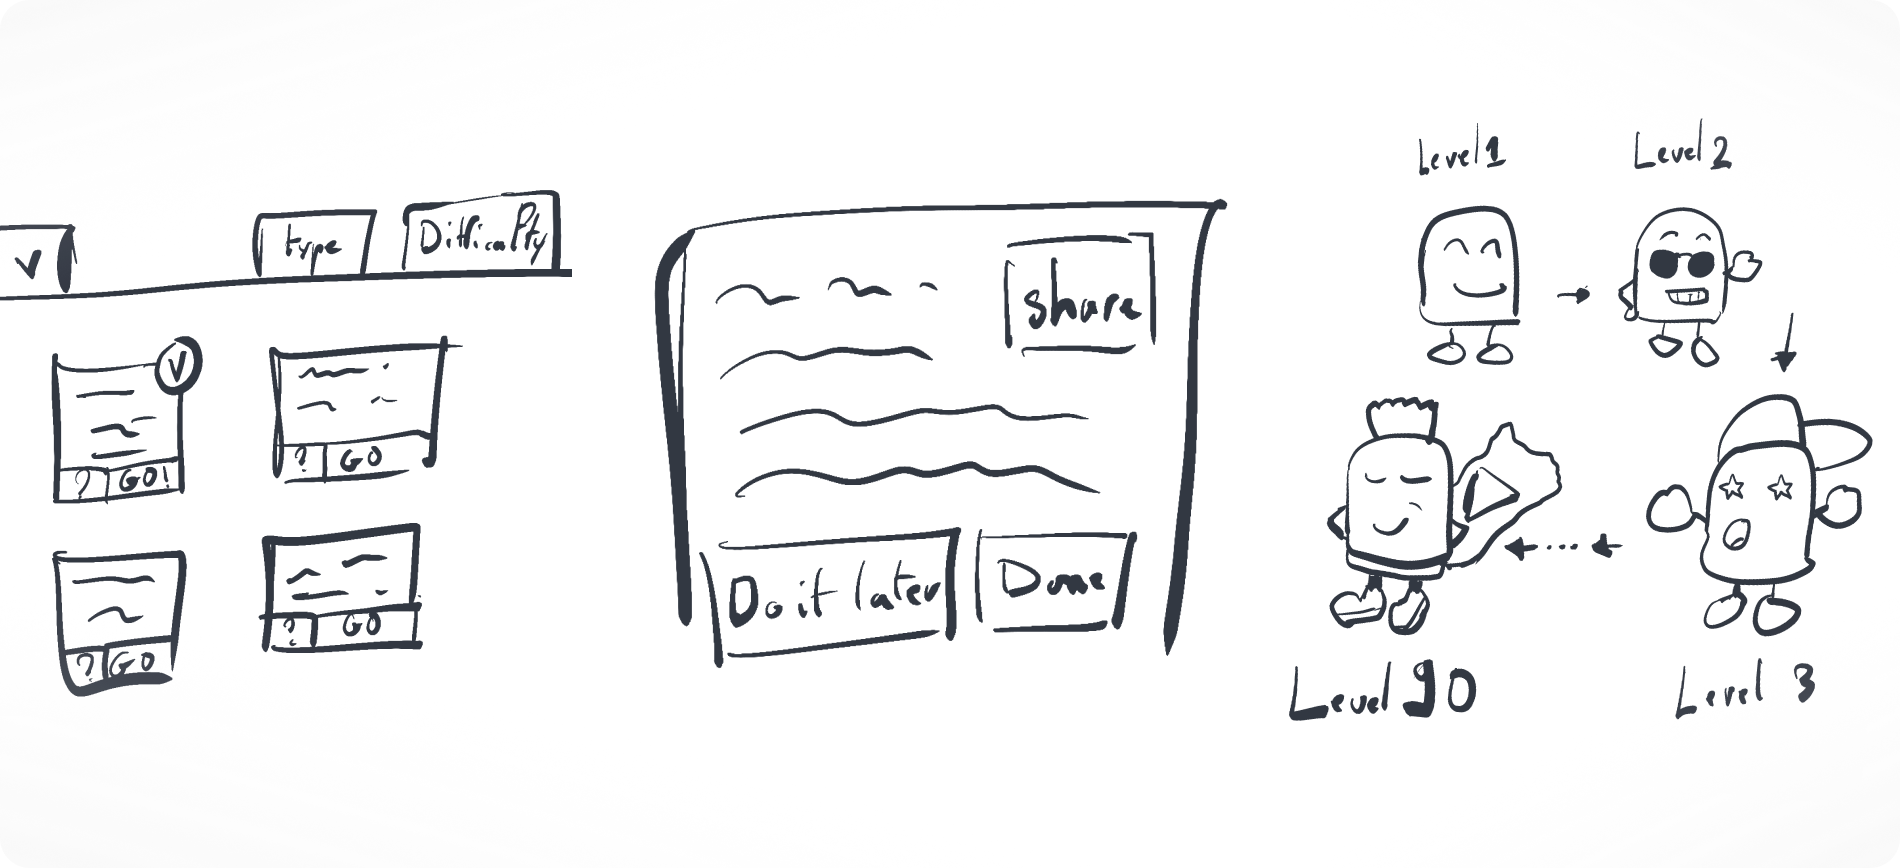 type
Difficulty
?
GO!
?
GO
?
GO
?
GO
share
Do it later
Done
Level 1
Level 2
Level 90
Level 3